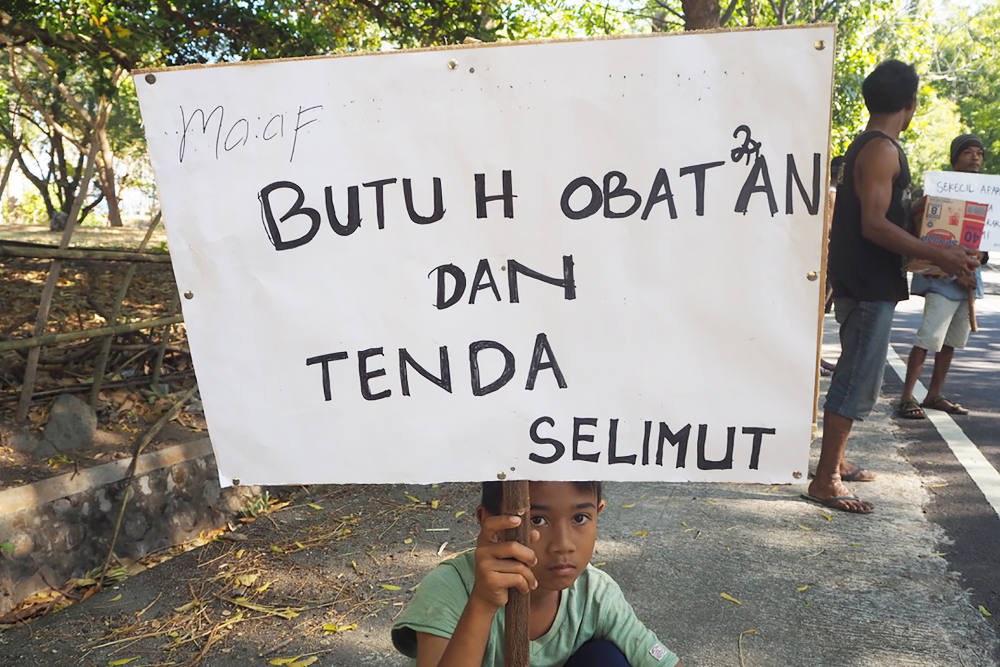 Ma:aF
BUTUH OBAT²AN
DAN
TENDA
SELIMUT
SEKECIL APAP
40